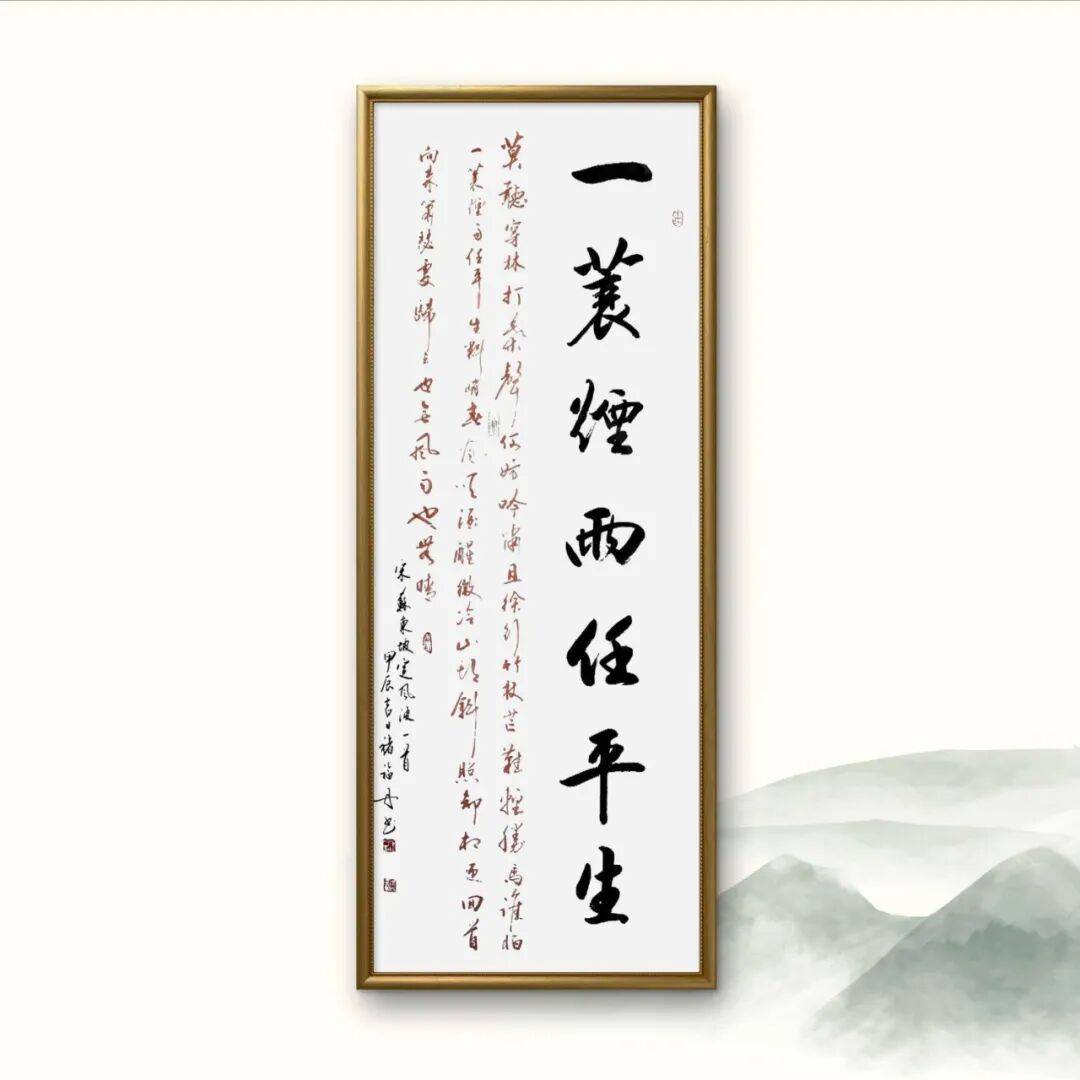 一蓑煙雨任平生
莫聽穿林打葉聲何妨吟嘯且徐行竹杖芒鞋輕勝馬誰怕
一蓑煙雨任平生料峭春寒吹酒醒微冷山頭斜照却相迎回首
向來蕭瑟處歸去也無風雨也無晴
宋蘇東坡定風波一首
甲辰吉日褚福丹书